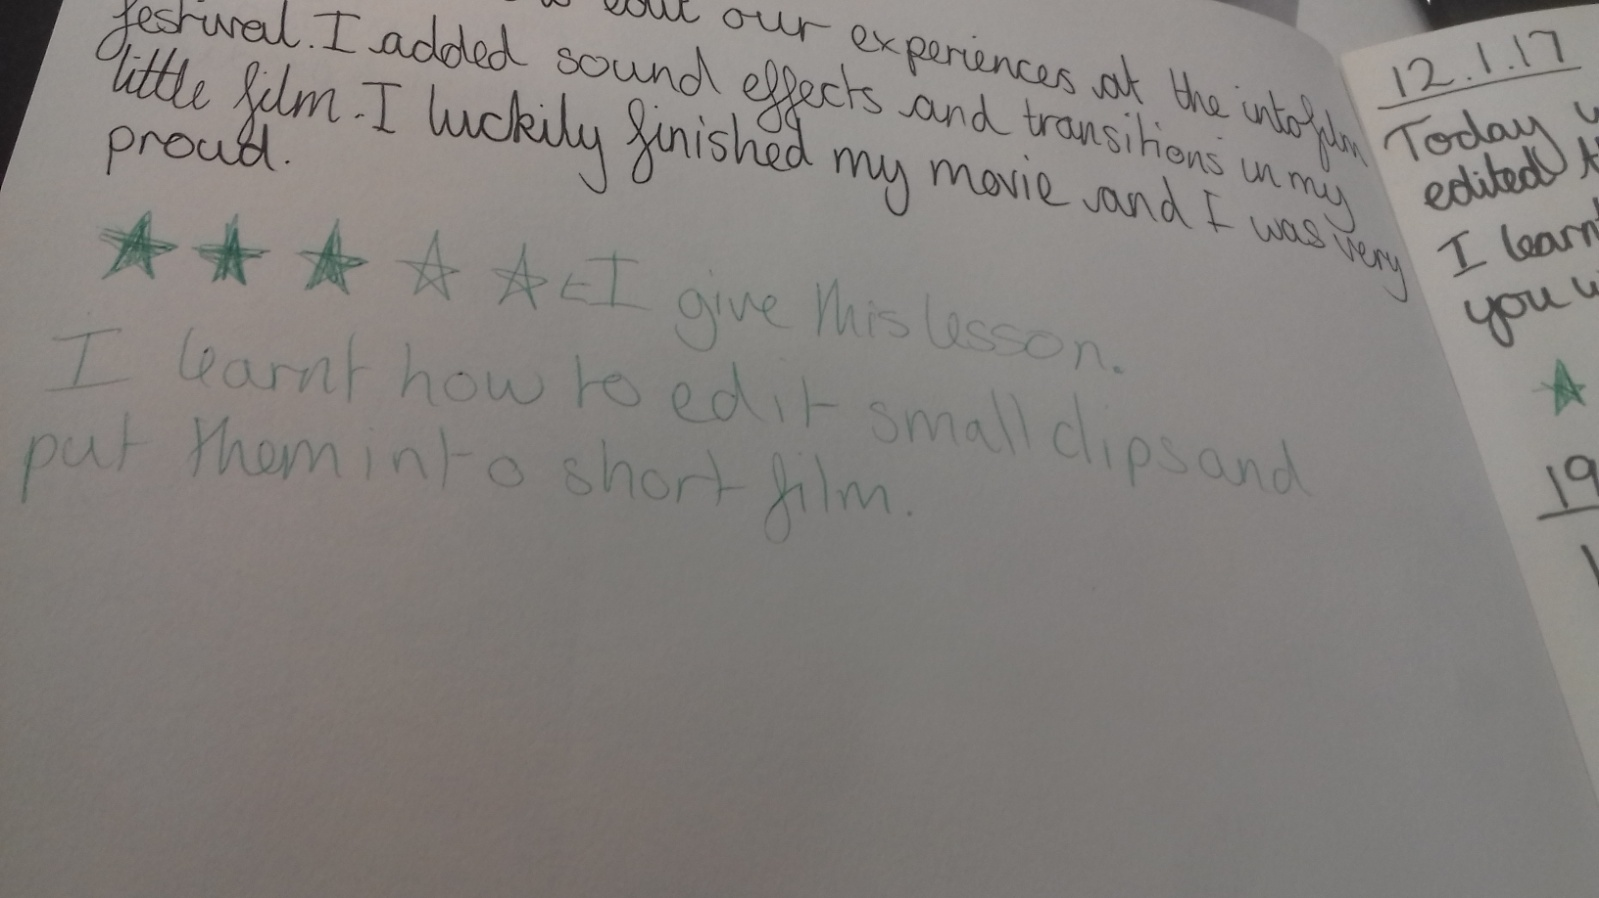 our experiences at the intofilm
festival. I added sound effects and transitions in my
little film. I luckily finished my movie and I was very
proud.
I give this lesson.
I learnt how to edit small clips and
put them into short film.
12.1.17
Today
edited
I learn
you
19